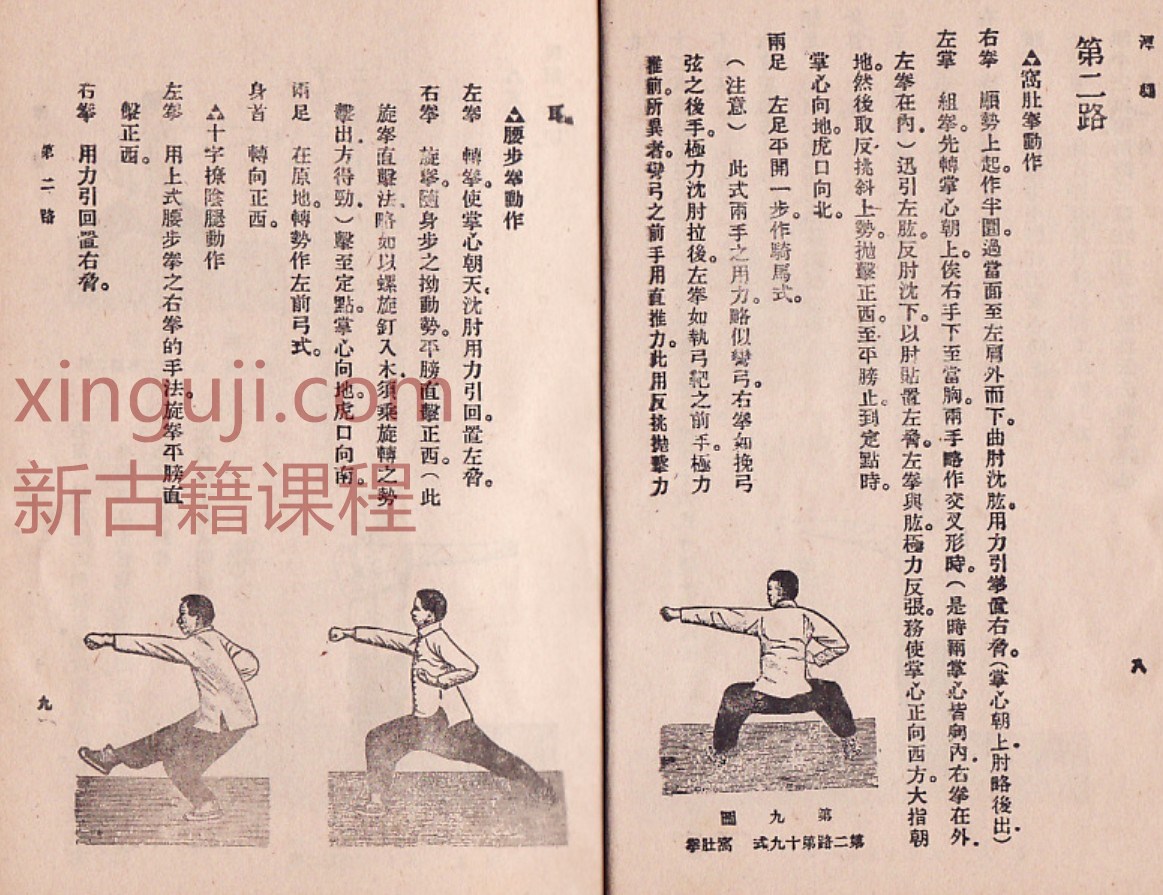 潭腿
第二路
窩肚拳動作
右拳 順勢上起。作半圓。過當面至左肩外而下。曲肘沈肱。用力引拳置右脅。(掌心朝上。肘略後出)
左掌 組拳。先轉掌心朝上。俟右手下至當胸。兩手略作交叉形時。(是時兩掌心皆朝內。右拳在外。
左拳在內。)迅引左肱。反肘沈下。以肘貼置左脅。左拳與肱。極力反張。務使掌心正向西方。大指朝
地。然後取反挑斜上勢。拋擊正西。至平膀止。到定點時。
掌心向地。虎口向北。
兩足 左足平開一步。作騎馬式。
(注意) 此式兩手之用力。略似彎弓。右拳如挽弓
弦之後手。極力沈肘拉後。左拳如執弓靶之前手。極力
推前。所異者。彎弓之前手用直推力。此用反挑拋擊力
八
第九圖
第二路第十九式 窩肚拳
耳
腰步拳動作
左拳 轉拳。使掌心朝天。沈肘用力引回。置左脅。
右拳 旋拳。隨身步之拗動勢。平膀直擊正西。(此
旋拳直擊法。略如以螺旋釘入木。須乘旋轉之勢
擊出。方得勁。)擊至定點。掌心向地。虎口向南。
兩足 在原地。轉勢作左前弓式。
身首 轉向正西。
十字撩陰腿動作
左拳 用上式腰步拳之右拳的手法。旋拳平膀直
擊正西。
右拳 用力引回置右脅。
第二路
九
xinguji.com
新古籍课程